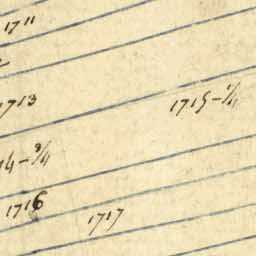 1711
1713
1715-1/4
14-3/4
1716
1717